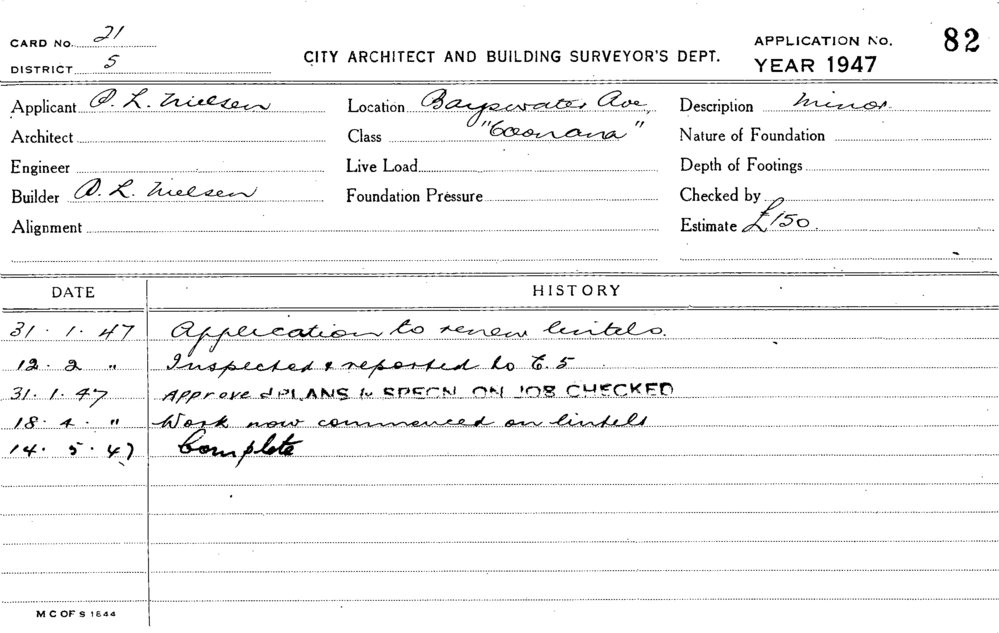 CARD No. 21
DISTRICT 5
CITY ARCHITECT AND BUILDING SURVEYOR'S DEPT.
APPLICATION No. 82
YEAR 1947
Applicant O. L. Nielsen Location Bayswater Ave, Description Minor
Architect Class "Coonana" Nature of Foundation
Engineer Live Load Depth of Footings
Builder O. L. Nielsen Foundation Pressure Checked by
Alignment Estimate £150
DATE HISTORY
31 . 1 . 47 Application to renew lintels.
12 . 2 " Inspected & reported to C. 5
31 . 1 . 47 Approved PLANS & SPECN ON JOB CHECKED
18 . 4 . " Work now commenced on lintels
14 . 5 . 47 Complete
M C OF S 1844